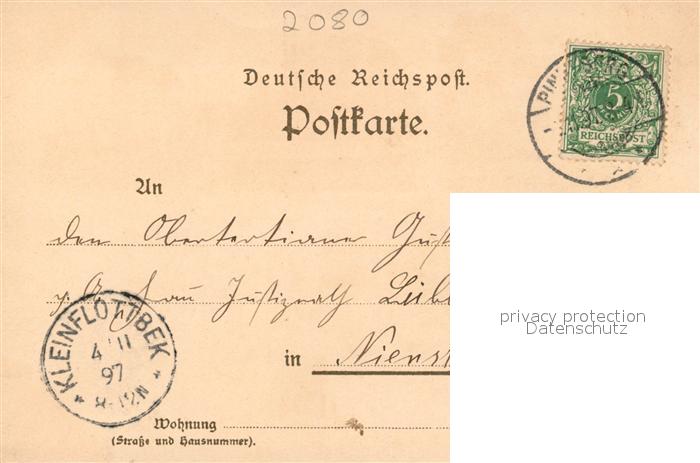 2080
Deutsche Reichspost.
Postkarte.
PIN
5
REICHSPOST
An
den Obertertianer Gust
p. A. Frau Justizrath Lüb
KLEINFLOTTBEK
4 11
97
8-12N
in Nienst
Wohnung
(Straße und Hausnummer).
privacy protection
Datenschutz